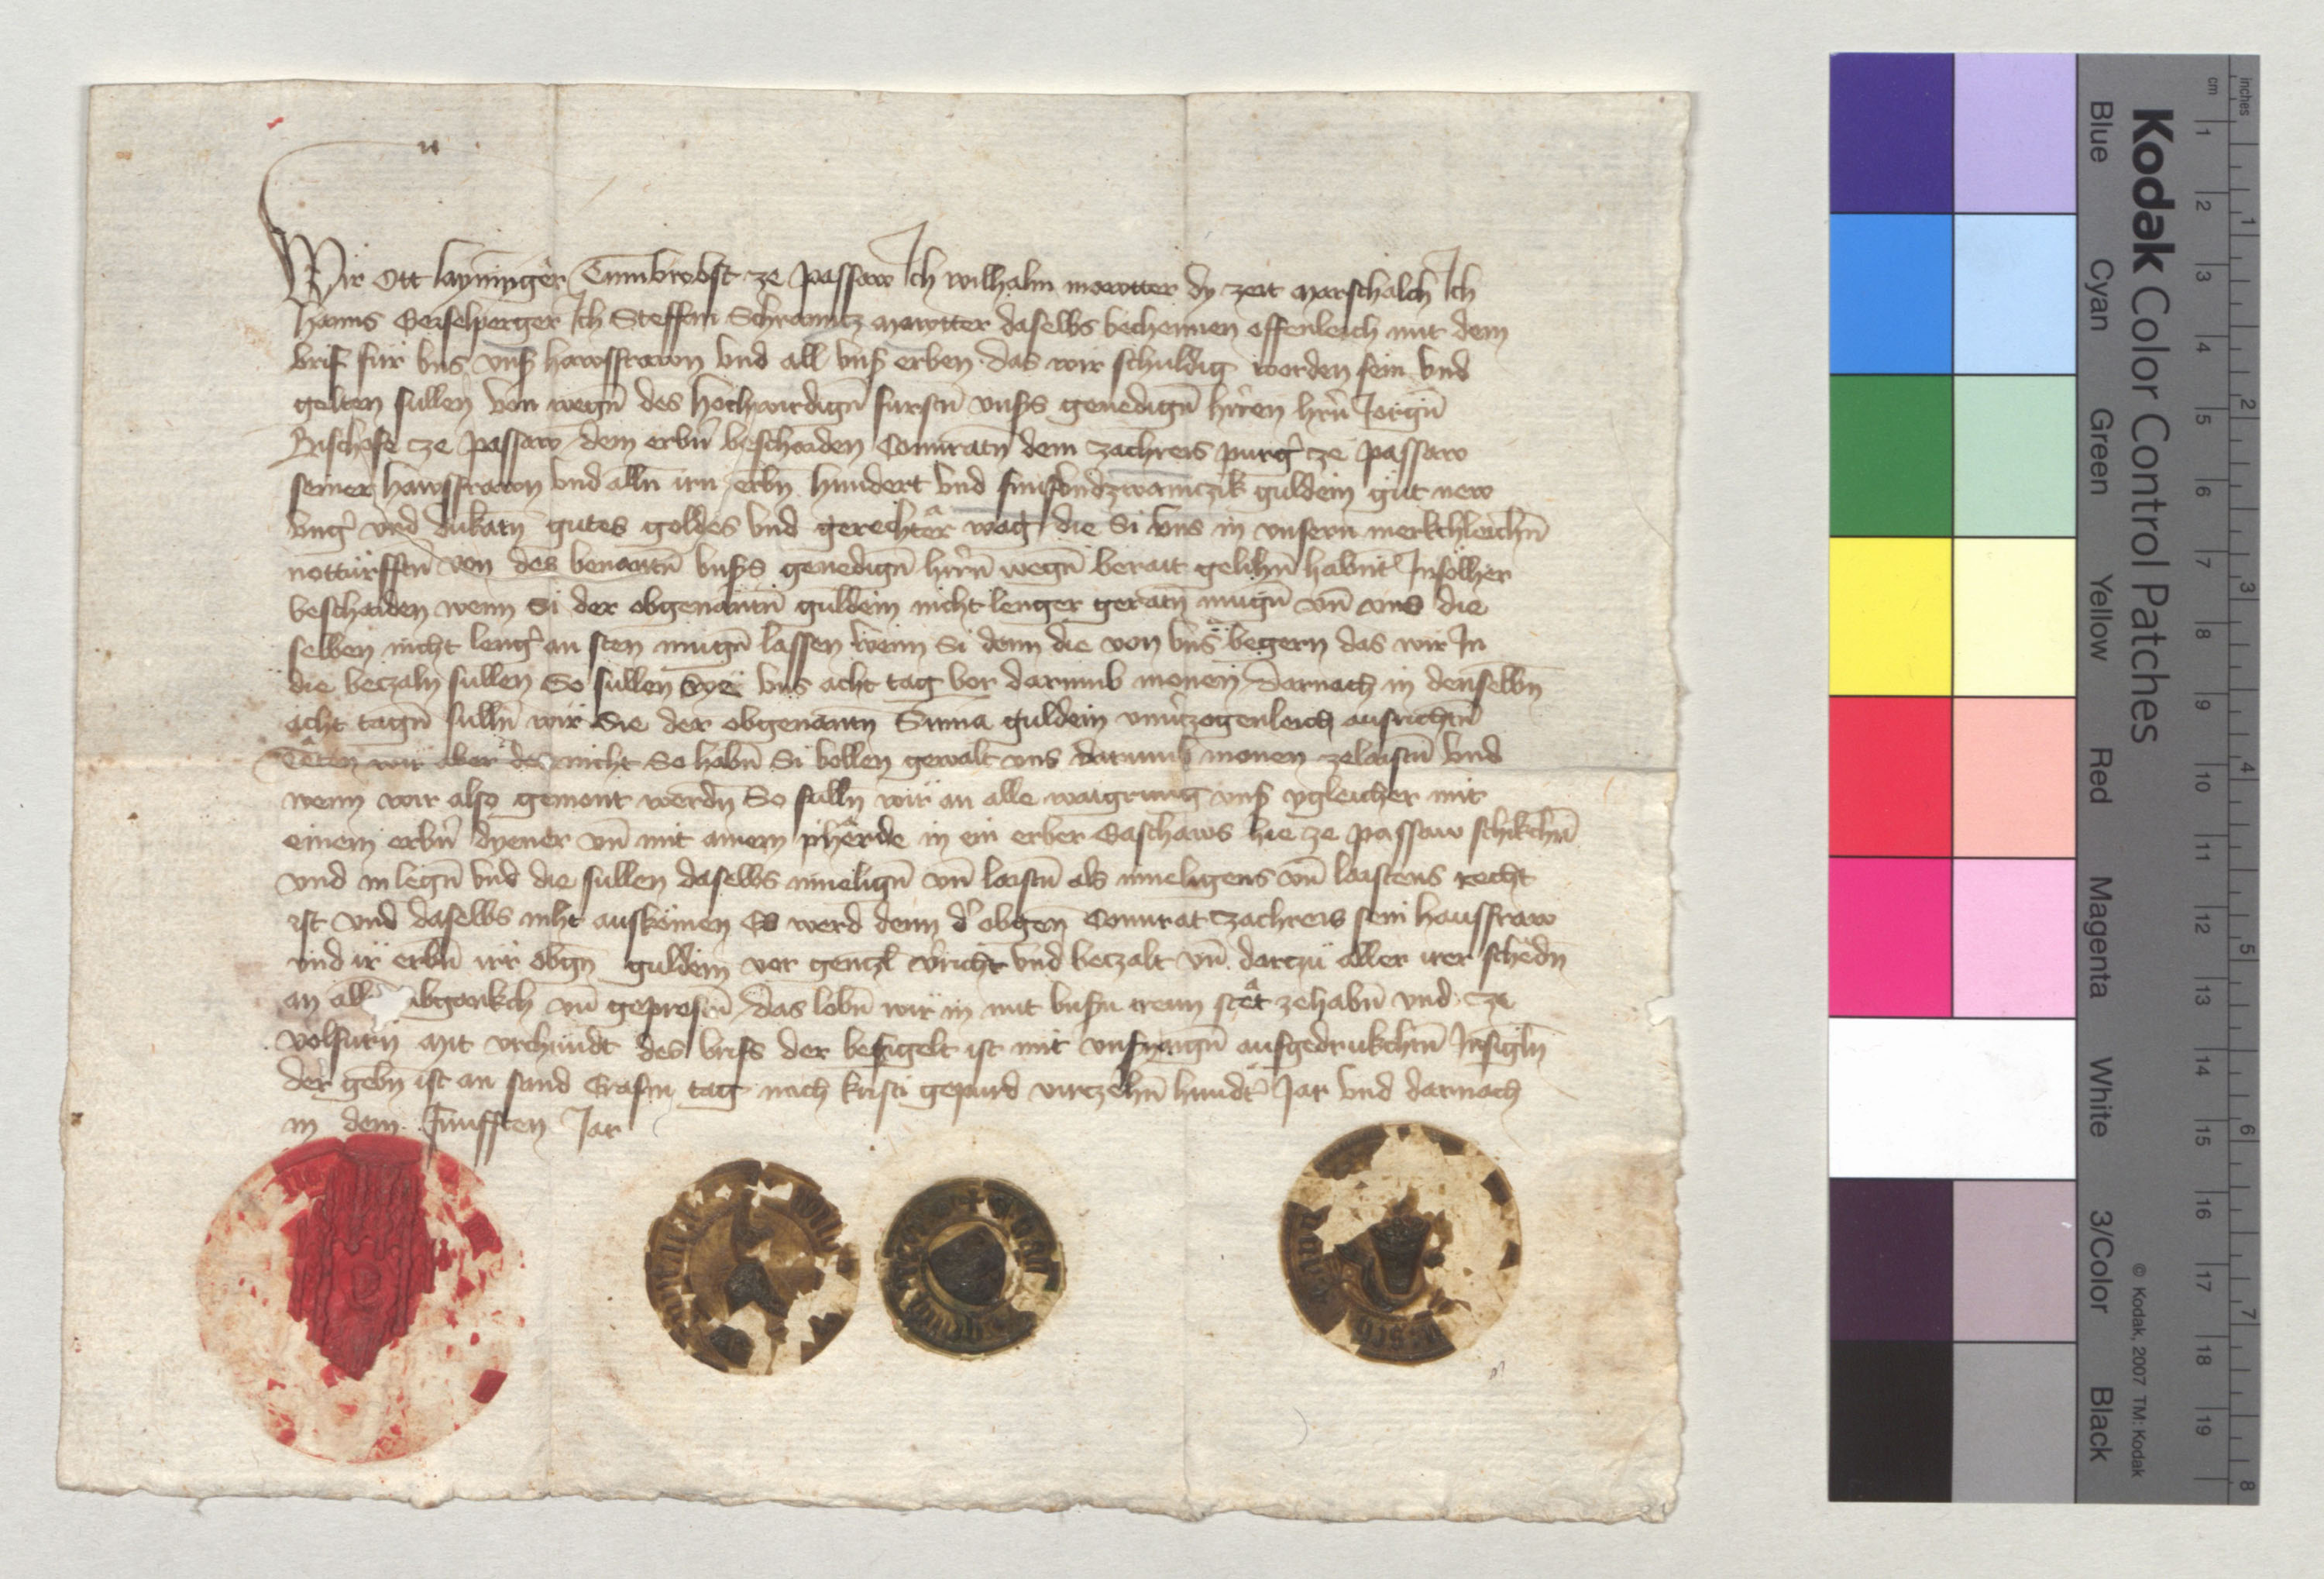 Wir Ott layminger Tumbrobst ze passaw Ich wilhalm mawtter dy zeit marschalch Ich
Hanns Geiselperger Ich Steffan mawtter daselbs bechennen offenleich mit dem
brif für vns vnsß hawsfrawn vnd all vnsß erben das wir schuldig worden sein vnd
gelten sullen von wegn̄ des hochwirdign̄ fursten̄ vnsßs genedign̄ hrren hrn̄ Jorgn̄
Bischofe ze passaw dem erbn̄ beschaiden Connratn̄ dem zachreis purgˀ ze passaw
seiner hawsfrawn vnd alln irn erbn hundert vnd fumfvndzwainczik guldein gut new
vngˀ vnd dukatn gutes goldes vnd gerechter wag die Si vns in vnsern merkchleichn̄
notturfften̄ von des benantn̄ vnsßs genedign̄ hrrn̄ wegn̄ berait gelihn̄ habnt Insolher
beschaiden wenn Si der obgenantn̄ guldein nicht lenger geratn̄ mugn̄ vn̄ vns die
selben nicht lengˀ an sten mugn̄ lassen wenn Si denn die von vns begern das wir In
die beczaln sullen So sullen Sye vns acht tag vor darumb monen Darnach in denselbn̄
acht tagn̄ sulln̄ wir Sie der obgenantn Suma guldein vnuˀczogenleich ausrichtn̄
Tëten wir aber des nicht So habn̄ Si vollen gewalt vns darumb monen zelaistn̄ vnd
wenn wir also gemont werdn̄ So sulln̄ wir an alle waigrung vnsß ygleicher mit
einem erbn̄ dyener vn̄ mit ainem phërde in ein erber Gasthaws hie ze passaw schikchn̄
vnd in legn̄ vnd die sullen daselbs innelign̄ vn̄ laistn̄ als inneligens vn̄ laistens recht
ist vnd daselbs niht auskömen Es werd denn dˀ obgen̄ Connrat zachreis sein hausfraw
vnd ir erbn̄ irr obgn̄ guldein vor genczl vˀricht vnd beczalt vn̄ darczu aller irer schëdn
an all abgankch vn̄ geprestn̄ das lobn̄ wir in mit vnsßn trewn stët zehabn̄ vnd ze
volfurn Mit vrchundt des brifs der besigelt ist mit vnsßn aign̄ aufgedrukchtn̄ Insigln̄
der gebn̄ ist an sand Erasm tag nach kristi gepurd virczehn̄ hundtˀ Jar vnd darnach
in dem Fumfften Jar
Kodak Color Control Patches
Blue Cyan Green Yellow Red Magenta White 3/Color Black
© Kodak, 2007 TM: Kodak
inches 1 2 3 4 5 6 7 8
cm 1 2 3 4 5 6 7 8 9 10 11 12 13 14 15 16 17 18 19